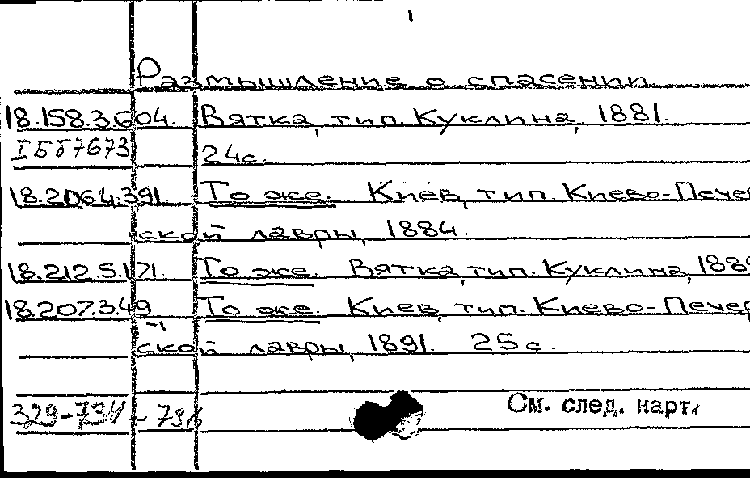 Размышление о спасении.
18.158.3.604. Вятка, тип. Куклина, 1881.
IББ7673 24с.
18.206.4.391. То же. Киев, тип. Киево-Печер
ской лавры, 1884.
18.212.5.171. То же. Вятка, тип. Куклина, 188
18.207.3.49 То же. Киев, тип. Киево-Печер
ской лавры, 1891. 25с.
См. след. карт.